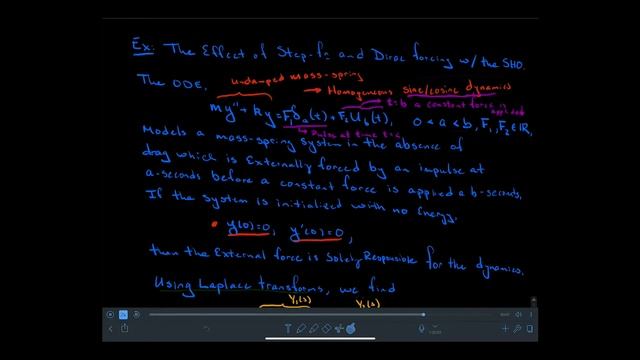 Ex: The Effect of Step-fn and Dirac forcing w/ the SHO.
undamped mass-spring
The ODE,
→ Homogeneous sine/cosine dynamics
t=b a constant force is applied
my''+ky=F₁δₐ(t)+F₂U_b(t), 0<a<b, F₁,F₂∈ℝ,
Pulse at time t=a
Models a mass-spring system in the absence of
drag which is Externally forced by an impulse at
a-seconds before a constant force is applied a b-seconds.
If the system is initialized with no Energy,
y(0)=0, y'(0)=0,
then the External force is Solely Responsible for the dynamics.
Using Laplace transforms, we find
Y₁(s) Y₂(s)